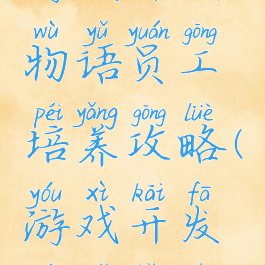 wù yǔ yuán gōng
物语员工
péi yǎng gōng lüè
培养攻略(
yóu xì kāi fā
游戏开发